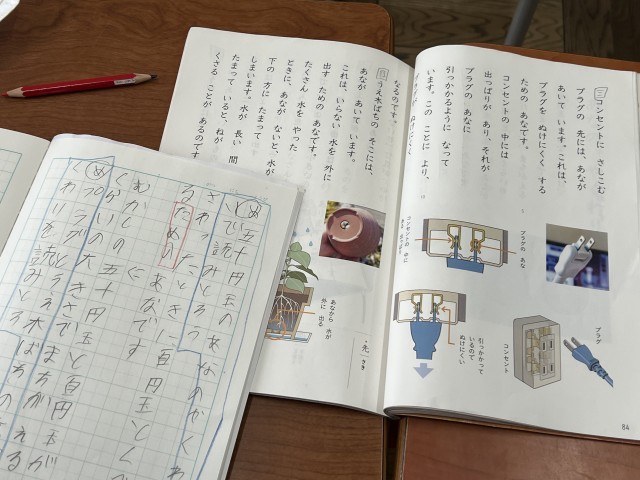 三 コンセントに さしこむ
プラグの 先には、あなが
あいて います。これは、
プラグを ぬけにくく する
ための あなです。
コンセントの 中には
出っぱりが あり、それが
プラグの あなに
引っかかるように なって
います。この ことに より、
プラグ
プラグの あな
コンセントの 中の
出っぱり
引っかかって
いるので
ぬけにくい
コンセント
84
なるのです。
四 うえ木ばちの そこには、
あなが あいて います。
これは、いらない 水を 外に
出す ための あなです。
たくさん 水を やった
ときに、あなが ないと、水が
下の 方に たまって
しまいます。水が 長い 間
たまって いると、ねが
くさる ことが あるのです
あなから 水が
外に 出る
先
さき
め 五十円玉のあなのやくわ
りを読みとろう
さわったときに百円玉とく
るための あなです
むかしの 五十円玉と百円玉が
くらいの大きさで まちがえる
め プラグとうえ木ばちの
くわりを読みとろう